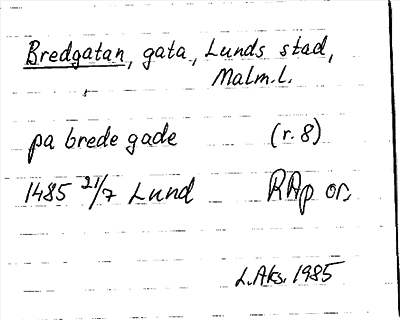 Bredgatan, gata, Lunds stad,
Malm.l.
pa brede gade (r. 8)
1485 21/7 Lund RAp or.
L.Aks. 1985